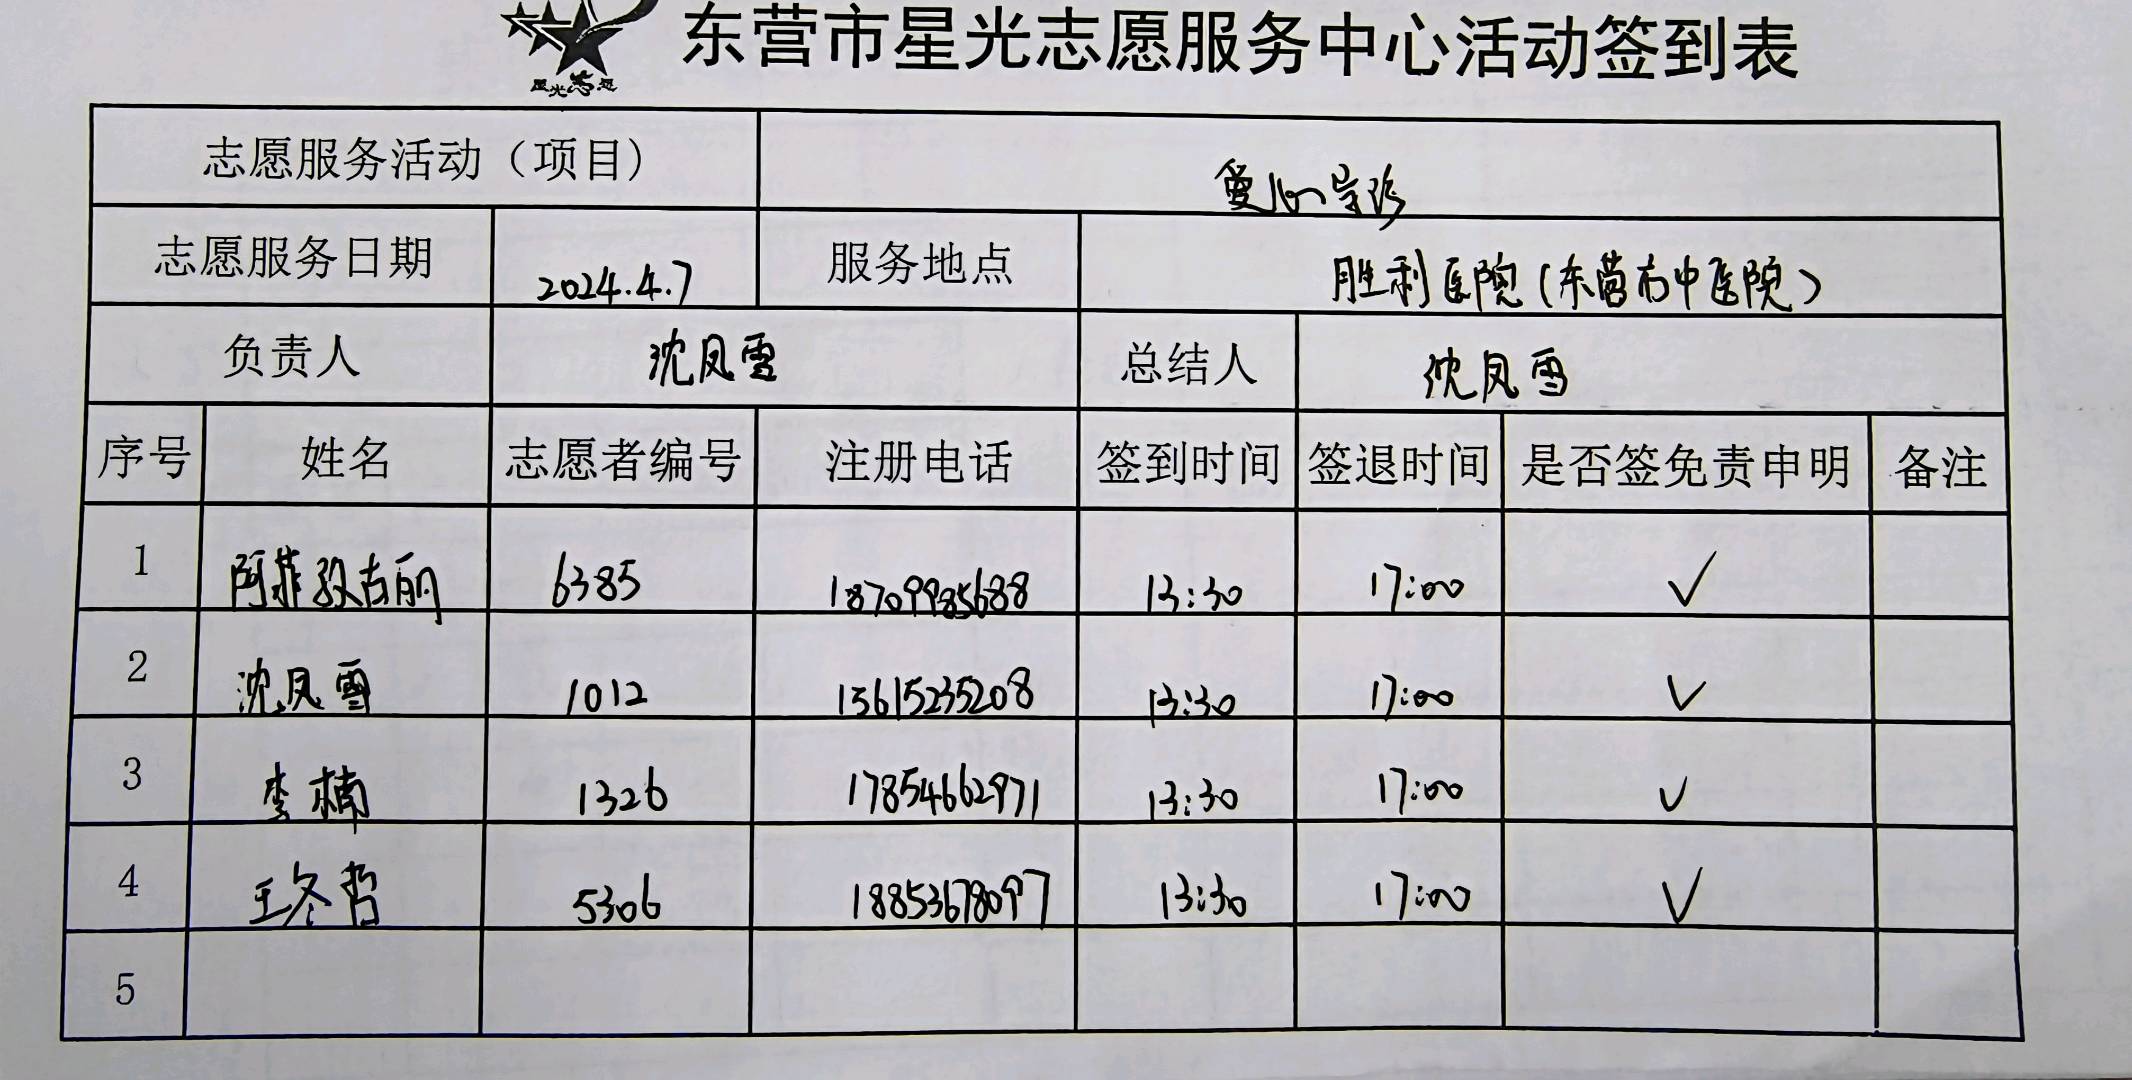 星光志愿
东营市星光志愿服务中心活动签到表
志愿服务活动（项目） 爱心导诊
志愿服务日期 2024.4.7 服务地点 胜利医院(东营市中医院)
负责人 沈凤雪 总结人 沈凤雪
序号 姓名 志愿者编号 注册电话 签到时间 签退时间 是否签免责申明 备注
1 阿菲孜古丽 6385 18709985688 13:30 17:00 ✓
2 沈凤雪 1012 15615235208 13:30 17:00 ✓
3 李楠 1326 17854662971 13:30 17:00 ✓
4 王冬哲 5306 18853678097 13:30 17:00 ✓
5